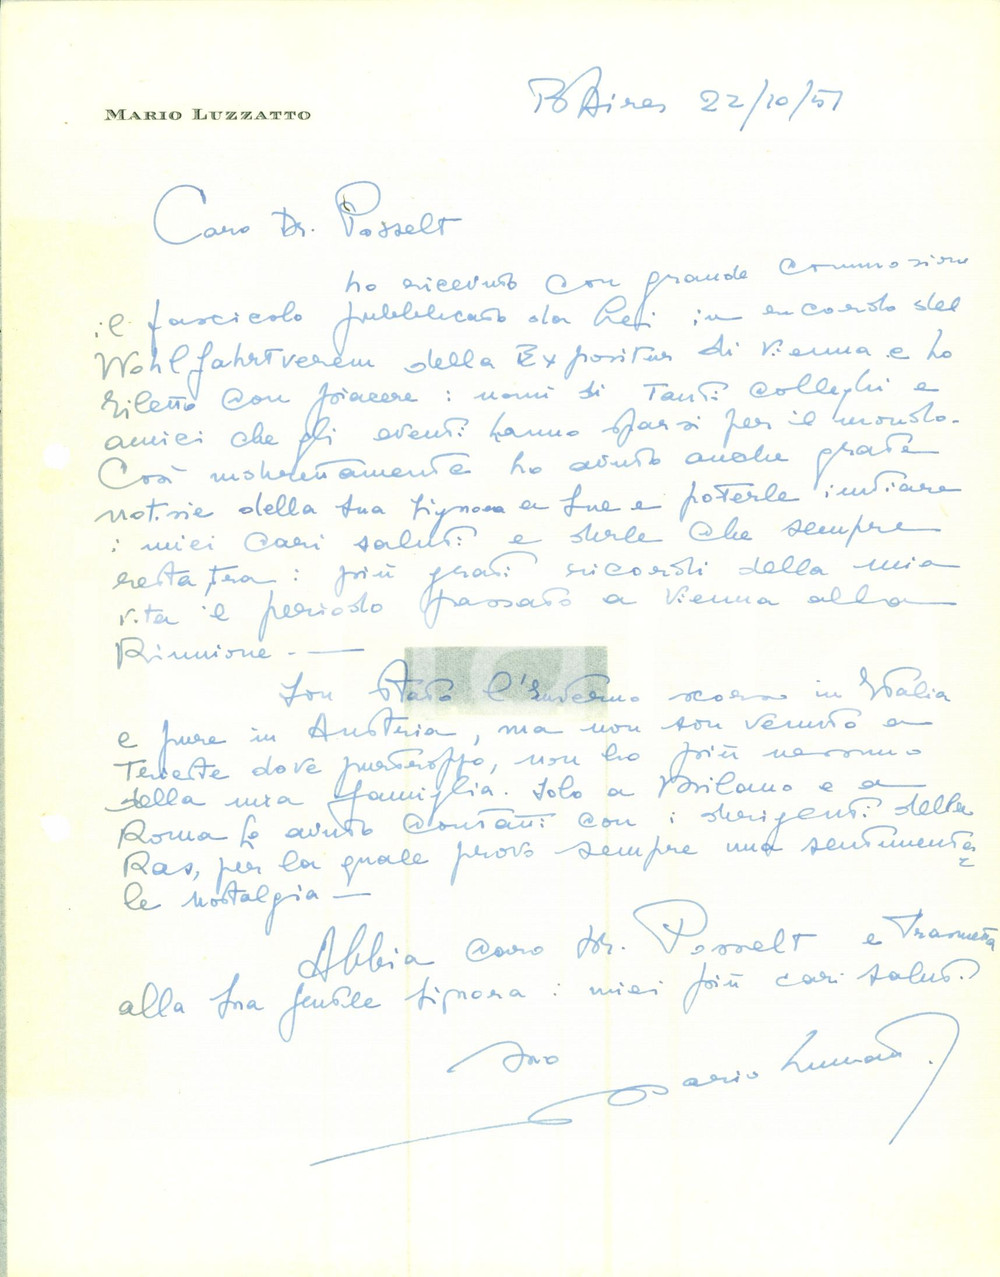 MARIO LUZZATTO
BAires 22/10/51
Caro Dr. Posselt
ho ricevuto con grande commozione
il fascicolo pubblicato da Lei in ricordo del
Wohlfahrtverein della Expositur di Vienna e ho
riletto con piacere i nomi di tanti colleghi e
amici che gli eventi hanno sparsi per il mondo.
Così indirettamente ho avuto anche grate
notizie della Sua Signora e Sue e poterle inviare
i miei cari saluti e dirle che sempre
resta tra i più grati ricordi della mia
vita il periodo passato a Vienna alla
Riunione. —
Son stato l'inverno scorso in Italia
e pure in Austria, ma non son venuto a
Trieste dove purtroppo, non ho più nessuno
della mia famiglia. Solo a Milano e a
Roma ho avuto contatti con i dirigenti della
Ras, per la quale provo sempre una sentimenta
le nostalgia —
Abbia caro Dr. Posselt e trasmetta
alla Sua gentile Signora i miei più cari saluti.
Suo
Mario Luzzatto